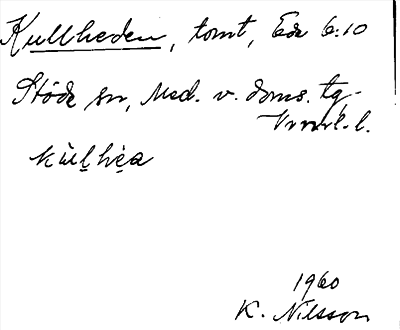 Kullheden, tomt, Ede 6:10
Stöde sn, Med. v. doms. tg.
l.
kùl̬hèa
1960
K. Nilsson